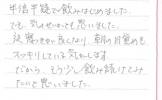 半信半疑で飲みはじめました。
でも、気のせいかとも思いました。
寝つきが良くなり、朝の目覚めも
スッキリしている気がします。
だから、もう少し飲み続けてみ
たいと思います。